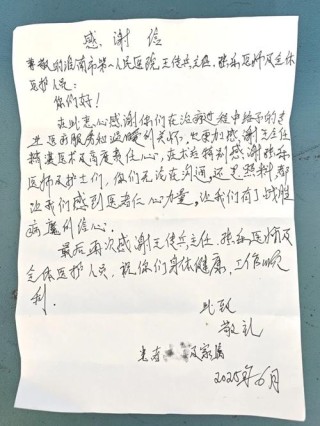 感谢信
尊敬的淮南市第一人民医院王传兵主任、张乐医师及全体
医护人员:
你们好!
在此衷心感谢你们在治病过程中给予的专
业医疗服务和温暖的关怀,也更加感谢王主任
精湛医术及高度责任心,在术后特别感谢张乐
医师及护士们,你们无论在沟通,还是照料都
让我们感到医者仁心力量,让我们有了战胜
病魔的信心。
最后再次感谢王传兵主任、张乐医师及
全体医护人员,祝你们身体健康,工作顺
利。
此致
敬礼
患者 及家属
2025年6月